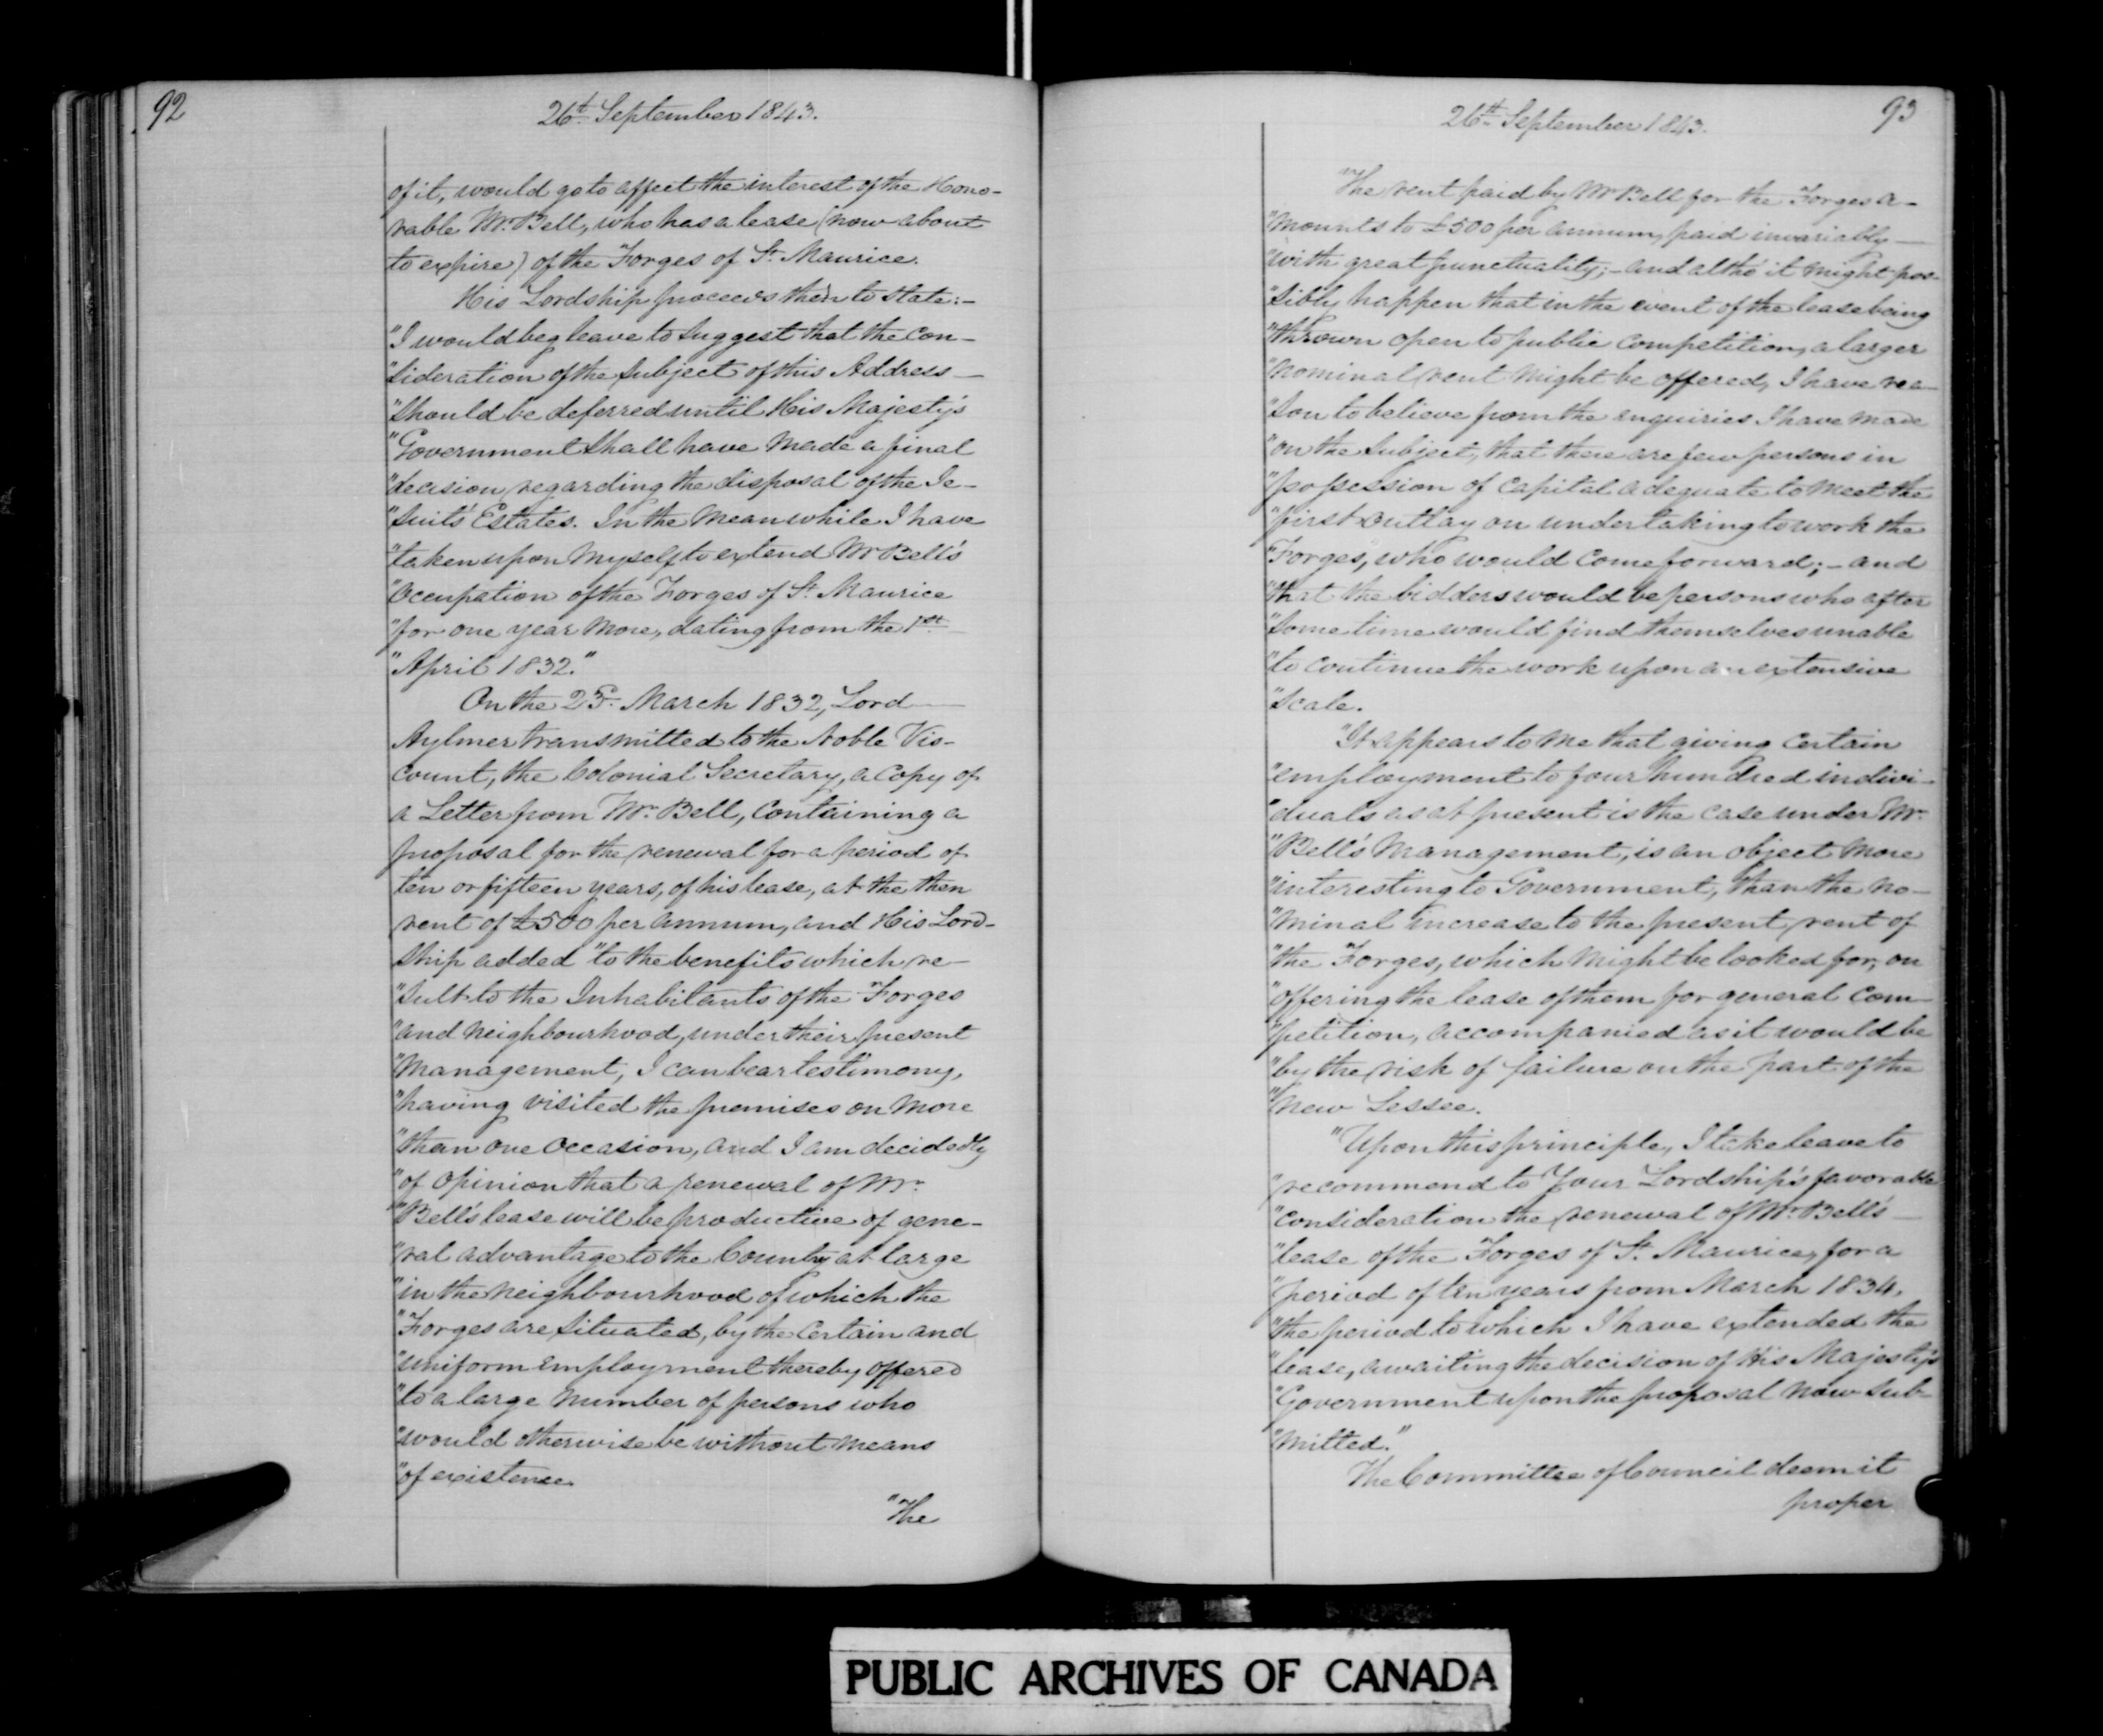 92
26th September 1843.
of it, would go to affect the interest of the Hono-
rable Mr. Bell, who has a lease (now about
to expire) of the Forges of St. Maurice.
His Lordship proceeds then to state:-
"I would beg leave to suggest that the Con-
"sideration of the subject of this Address-
"should be deferred until His Majesty's
"Government shall have made a final
"decision regarding the disposal of the Je-
"suits' Estates. In the meanwhile I have
"taken upon myself to extend Mr Bell's
"occupation of the Forges of St. Maurice
"for one year more, dating from the 1st
"April 1832."
On the March 1832, Lord
Aylmer transmitted to the Noble Vis-
count, the Colonial Secretary, a Copy of
a Letter from Mr. Bell, Containing a
proposal for the renewal for a period of
ten or fifteen years, of his lease, at the then
rent of £500 per annum, and His Lord-
ship added "to the benefits which re-
"sult to the Inhabitants of the Forges
"and neighbourhood, under their present
"management, I can bear testimony,
"having visited the premises on more
"than one occasion, and I am decidedly
"of opinion that a renewal of Mr.
"Bell's lease will be productive of gene-
"ral advantage to the County at large
"in the neighbourhood of which the
"Forges are situated, by the certain and
"uniform employment thereby offered
"to a large number of persons who
"would otherwise be without means
"of existence
"The
93
26th September 1843.
"The rent paid by Mr Bell for the Forges a-
"mounts to £500 per annum, paid invariably-
"with great punctuality;- and altho' it might pos-
"sibly happen that in the event of the lease being
"thrown open to public competition, a larger
"nominal rent might be offered, I have rea-
"son to believe from the enquiries I have made
"on the subject, that there are few persons in
"possession of capital adequate to meet the
"first outlay on undertaking to work the
"Forges, who would come forward;- and
"that the bidders would be persons who after
"some time would find themselves unable
"to continue the work upon an extensive
"scale.
"It appears to me that giving certain
"employment to four hundred indivi-
"duals as at present is the case under Mr.
"Bell's management, is an object more
"interesting to Government, than the no-
"minal increase to the present rent of
"the Forges, which might be looked for, on
"offering the lease of them for general com-
"petition, accompanied as it would be
"by the risk of failure on the part of the
"new Lessee.
"Upon this principle, I take leave to
"recommend to Your Lordship's favorable
"consideration the renewal of Mr. Bell's-
"lease of the Forges of St. Maurice, for a
"period of ten years from March 1834,
"the period to which I have extended the
"lease, awaiting the decision of His Majesty's
"Government upon the proposal now sub-
"mitted."
The Committee of Council deem it
proper
PUBLIC ARCHIVES OF CANADA